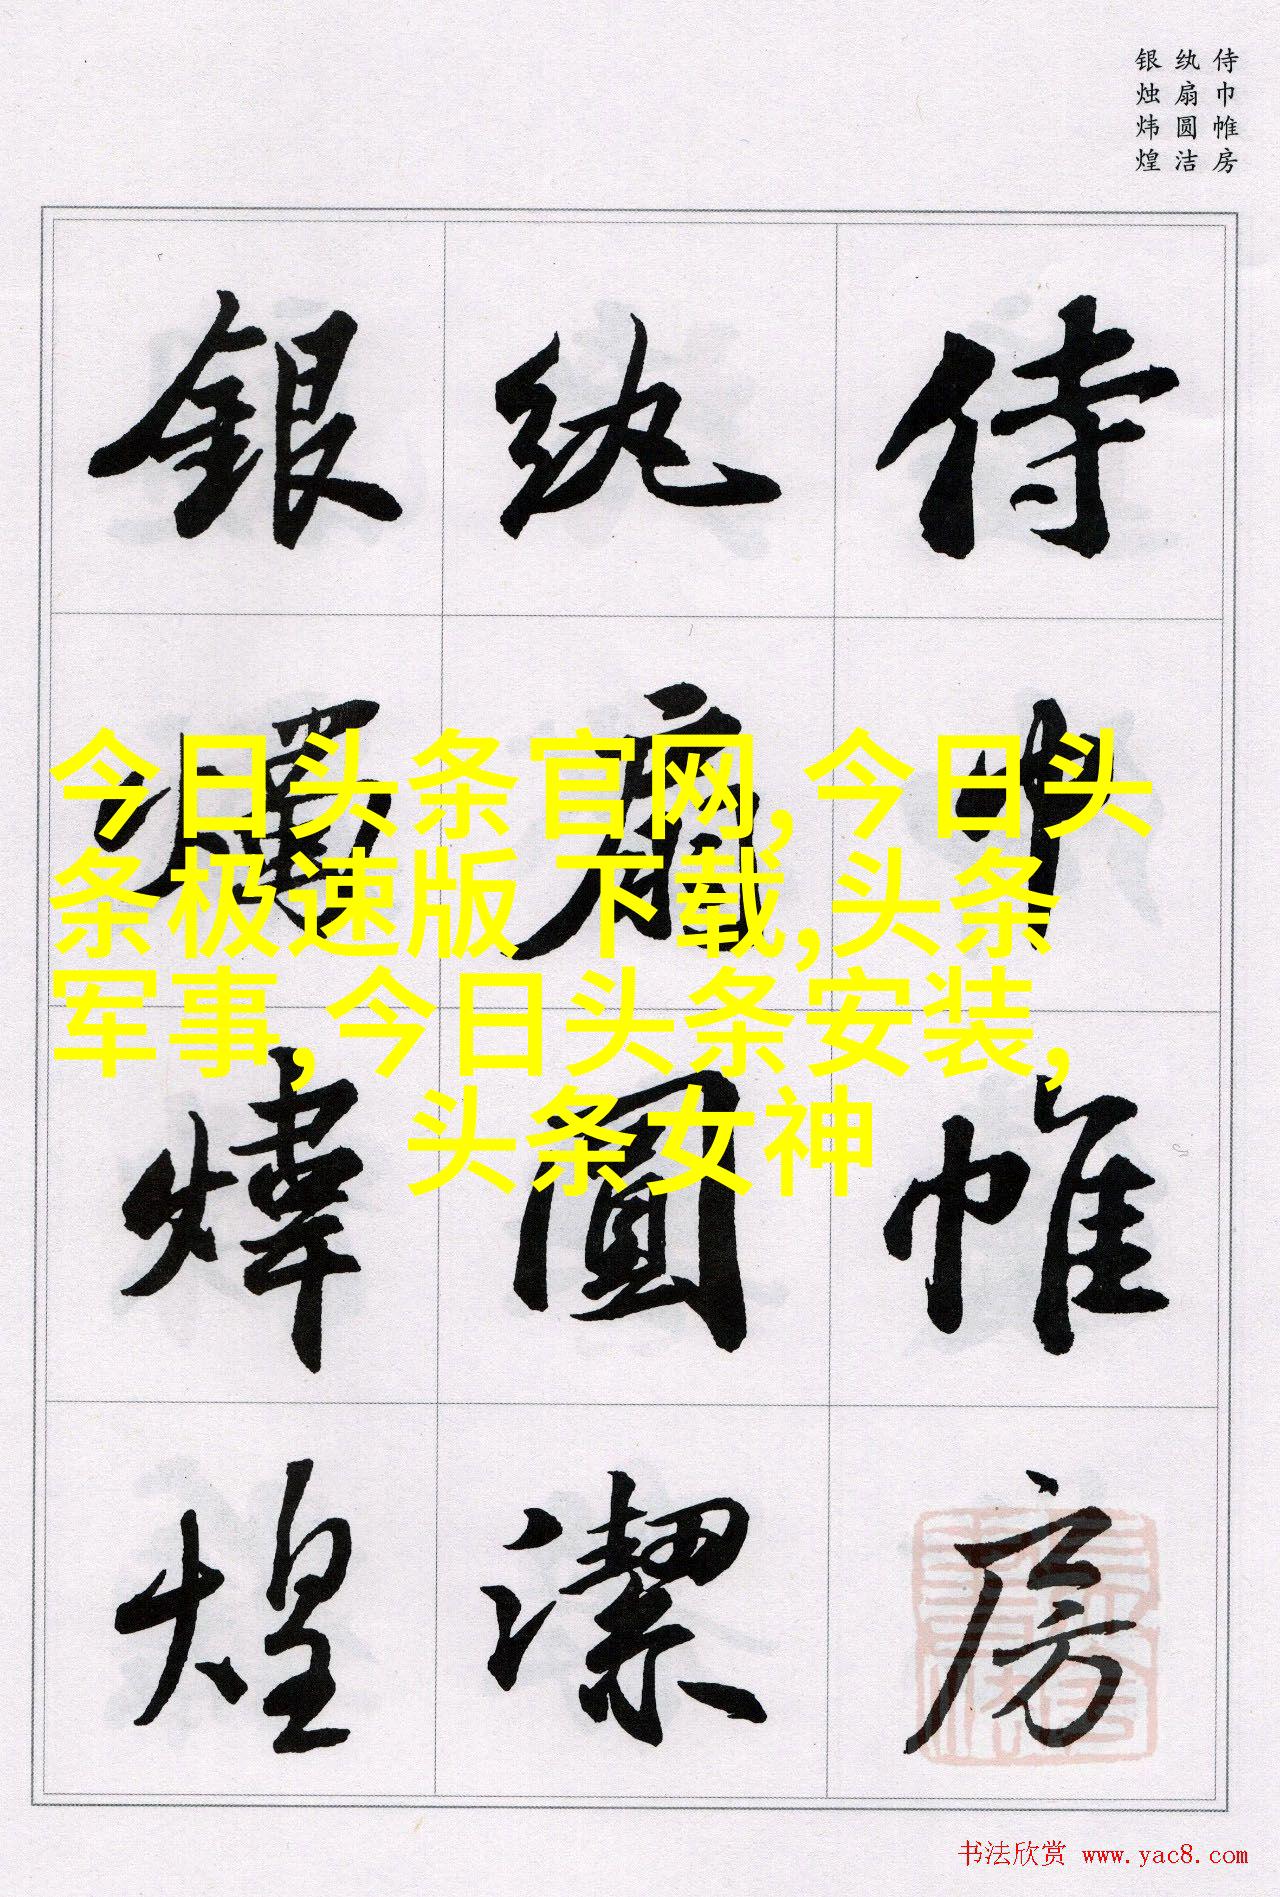 侍巾帷房
纨扇圆洁
银烛炜煌
侍巾帷房
纨扇圓潔
銀燭煒煌
今日头条官网,今日头
条极速版 下载,头条
军事,今日头条安装,
头条女神
书法欣赏 www.yac8.com